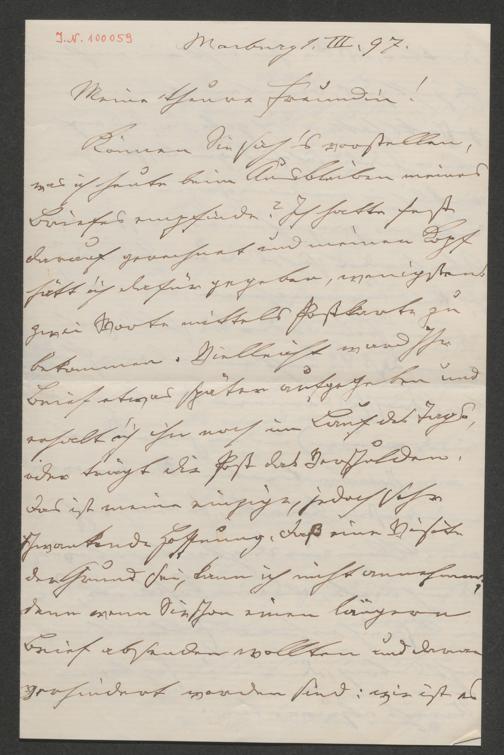 I.N. 100059
Marburg 1. III. 97.
Meine theure Freundin!
Können Sie sich's vorstellen,
was ich heute beim Ausbleiben meines
Briefes empfinde? Ich hatte fest
darauf gerechnet und meinen Kopf
hätt ich dafür gegeben, wenigstens
zwei Worte mittels Postkarte zu
bekommen. Vielleicht ward Ihr
Brief etwas später aufgegeben und
erhalt ich ihn noch im Lauf des Tags,
oder trägt die Post das Verschulden.
Das ist meine einzige, jedoch sehr
schwankende Hoffnung. Daß eine Visite
der Grund sei, kann ich nicht annehmen,
denn wenn Sie schon einen längern
Brief absenden wollten und daran
verhindert worden sind: wie ist es